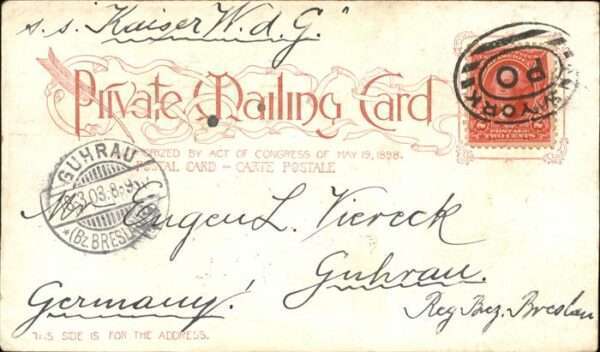 s.s. "Kaiser W. d. G."
Private Mailing Card
AUTHORIZED BY ACT OF CONGRESS OF MAY 19, 1898.
POSTAL CARD – CARTE POSTALE
NEW YORK N.Y.
P O
POSTAGE
TWO CENTS
GUHRAU
3.03.8-9
*(Bz BRESL
Mr Eugen L. Viereck
Guhrau.
Germany!
Reg. Bez. Breslau
THIS SIDE IS FOR THE ADDRESS.